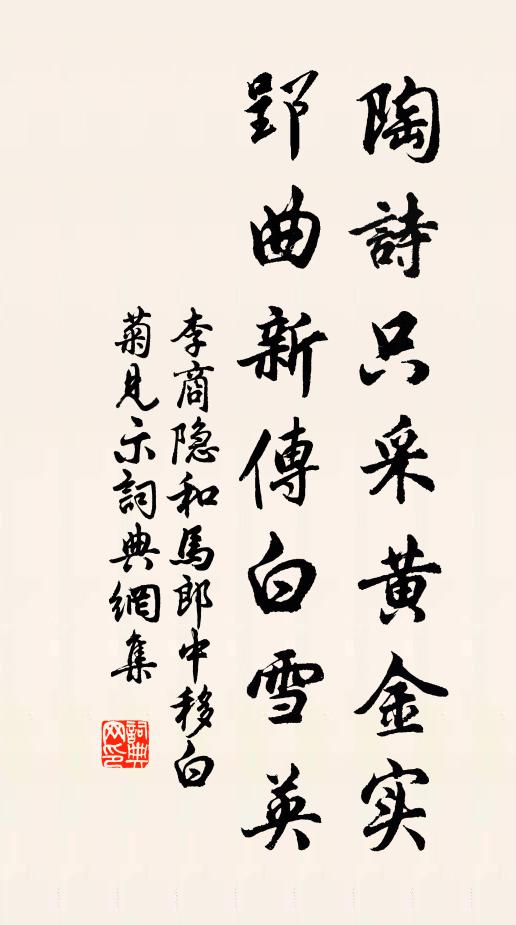 陶詩只采黄金实
郢曲新傳白雪英
李商隐和馬郎中移白
菊見示詞典網集
詞典网印